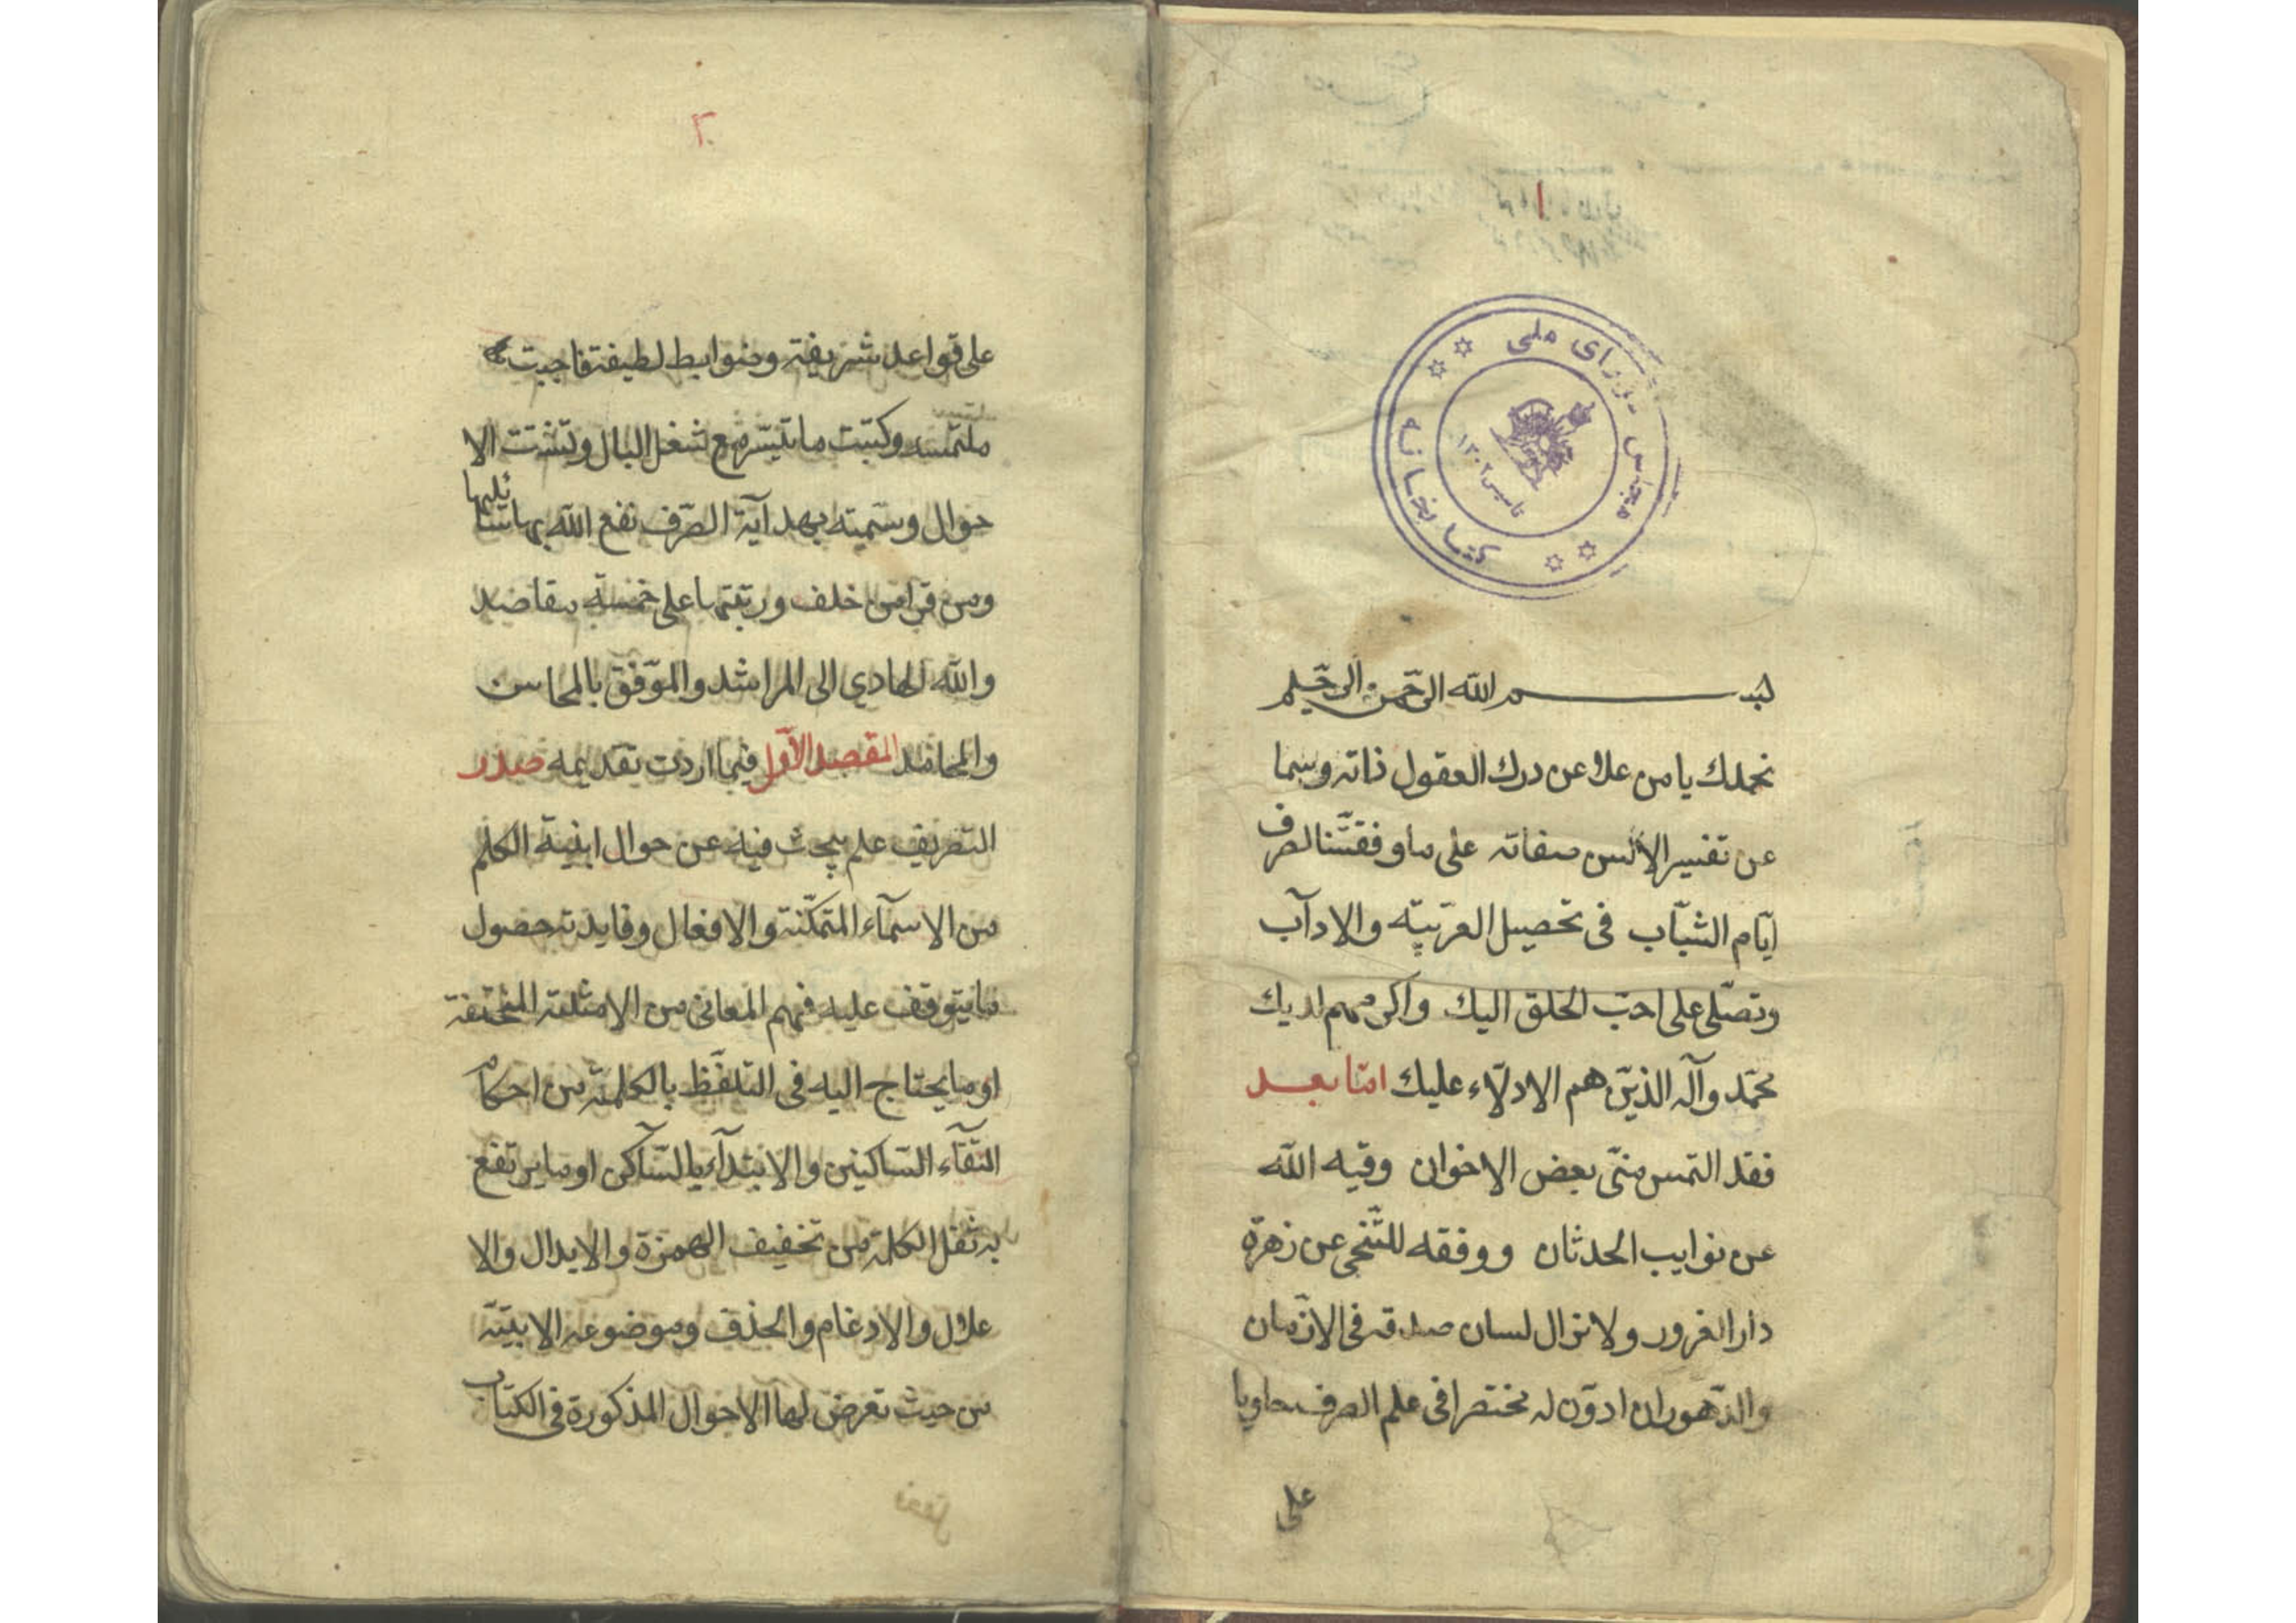 ١
مجلس شورای ملی
کتابخانه
تاسیس ١٣٠٢
بسم الله الرحمن الرحیم
نحمدك یا من علا عن درك العقول ذاته وسما
عن تفسیر الالسن صفاته علی ما وفقتنا لصرف
ایّام الشبّاب فی تحصیل العربیّه والادآب
ونصلّی علی احبّ الخلق الیك واکرمهم لدیك
محمّد وآله الذین هم الادلّاء علیك امّا بعد
فقد التمس منّی بعض الاخوان وقیه الله
عن نوایب الحدثان ووفقه للتّنحی عن زهرة
دار الغرور ولا نزال لسان صدقه فی الازمان
والدّهور ان ادوّن له مختصرا فی علم الصرف حاویا
علی
٢
علی قواعد شریفة وضوابط لطیفة فاجبت
ملتمسه وکتبت ما تیسّر مع شغل البال وتشتت الا
حوال وسمّیته بهدآیة الصّرف نفع الله بها
ومن قرأ من خلف ورتبتها علی خمسة مقاصد
والله الهادی الی المراشد والموّفق بالمحاسن
والمحامد المقصد الاوّل فیما اردت تقدیمه صدر
التصریف علم یبحث فیه عن حوال ابنیة الکلم
من الاسمآء المتمکّنة والافعال وفایدته حصول
ما یتوقف علیه فهم المعانی من الامثلة المختلفة
او ما یحتاج الیه فی التلفّظ بالکلمة من احکام
التقآء السّاکنین والابتدآء بالسّاکن او ما یرتفع
به ثقل الکلمة من تخفیف الهمزة والابدال والا
علال والادغام والحذف وموضوعه الابنیّة
من حیث تعرض لها الاحوال المذکورة فی الکتاب